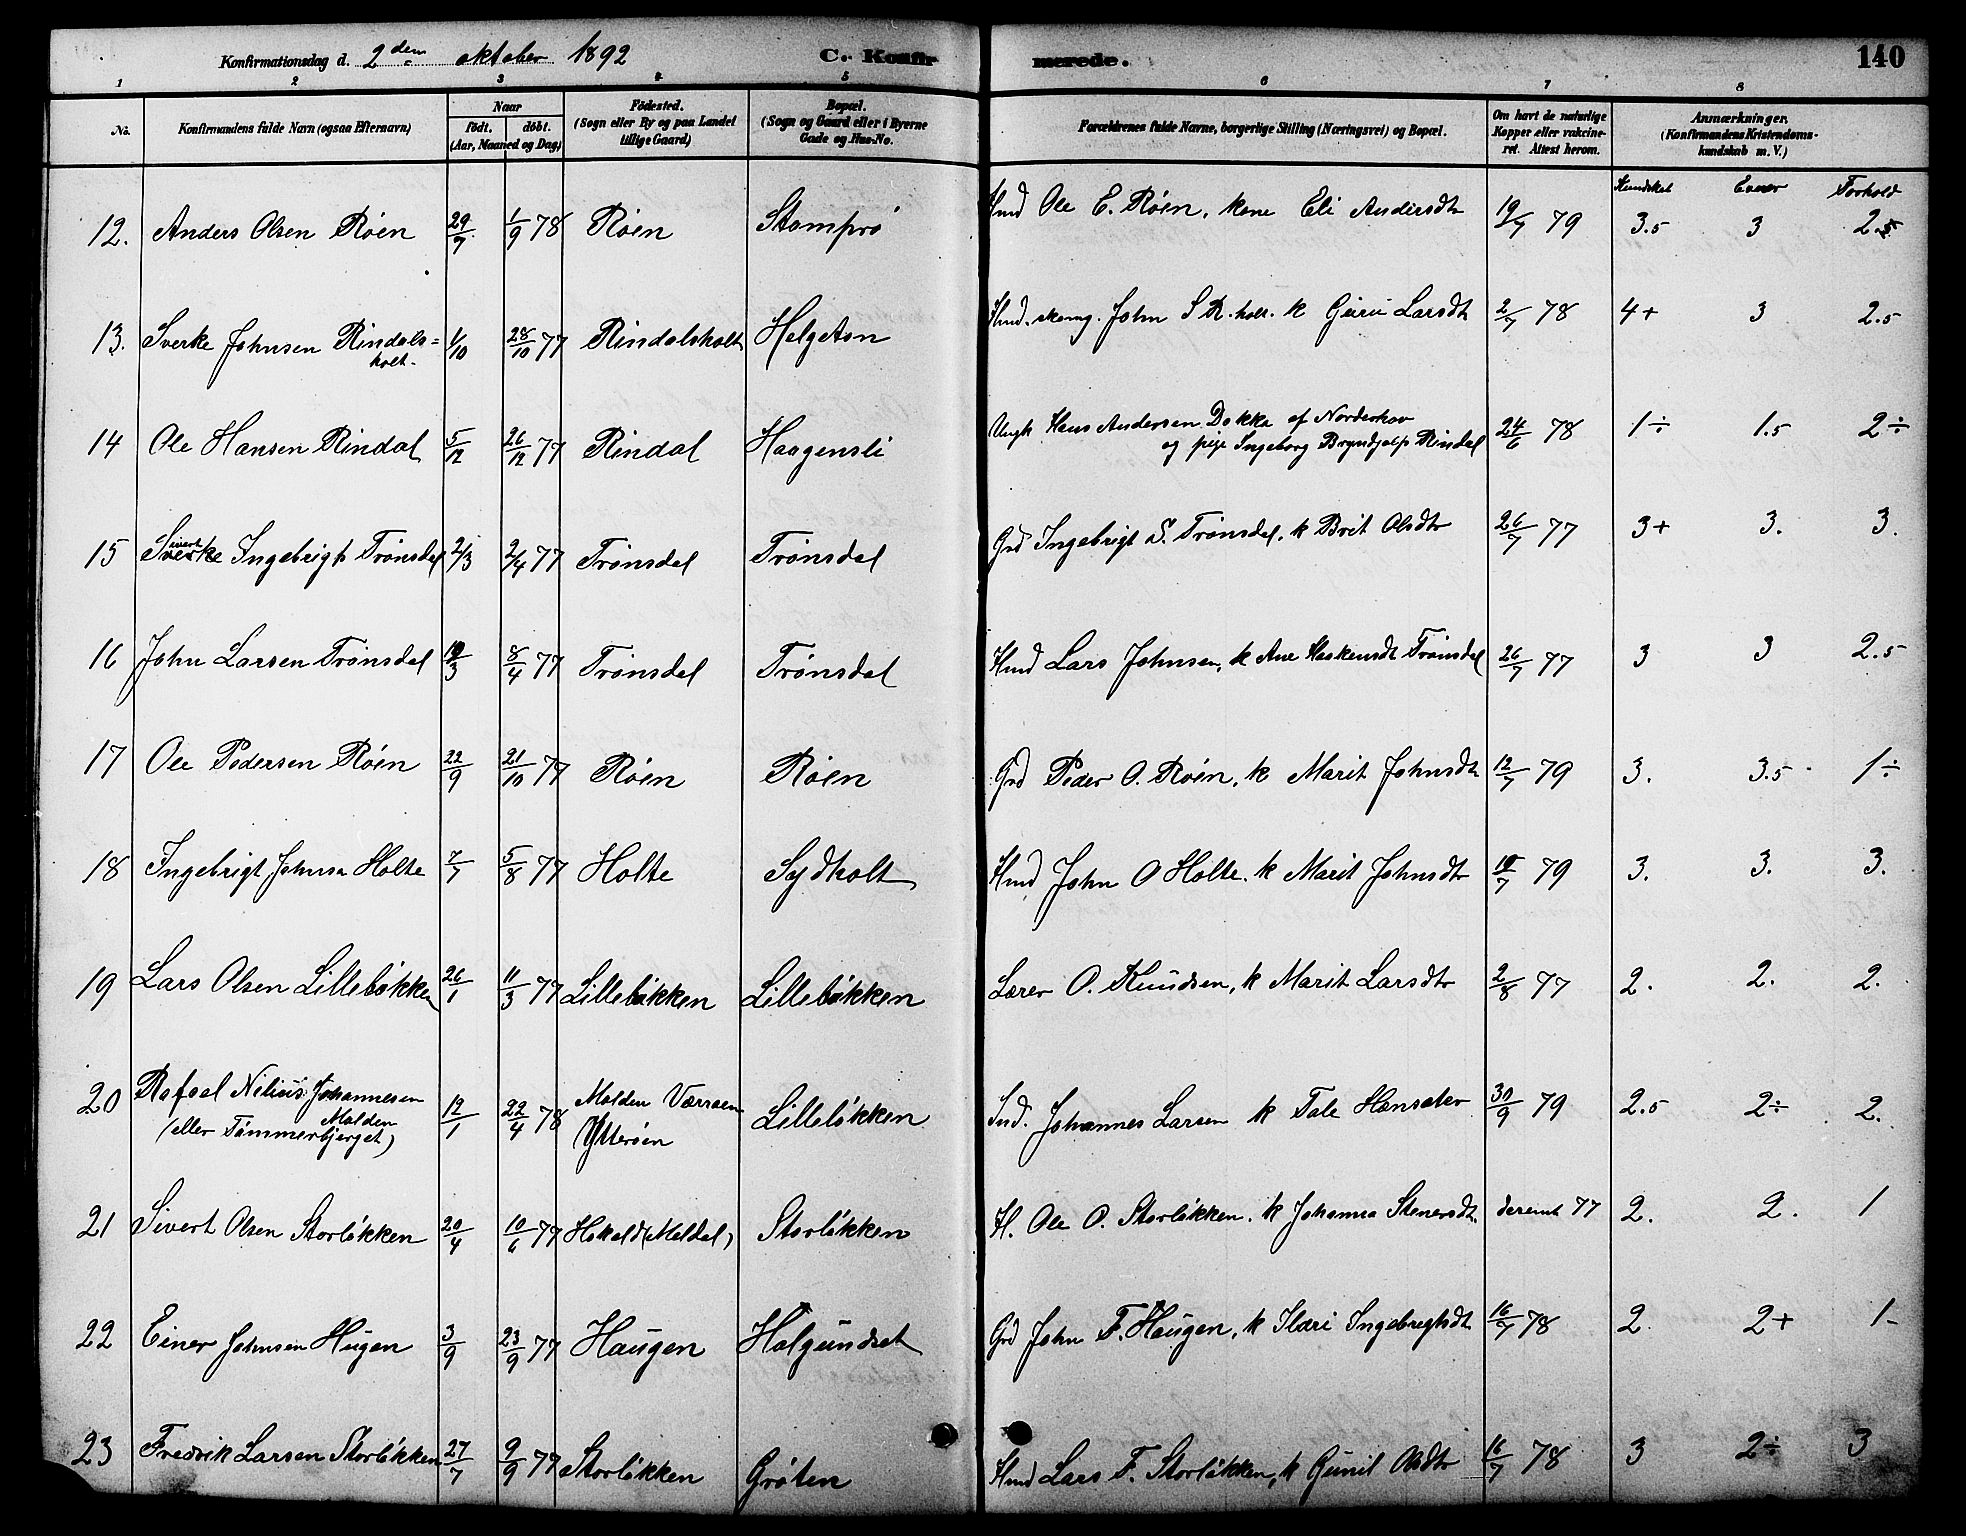 Konfirmationsdag d. 2den oktober 1892 C. Konfirmerede. 140
1 2 3 4 5 6 7 8
No. Konfirmandens fulde Navn (ogsaa Efternavn) Naar født. døbt. (Aar, Maaned og Dag) Fødested. (Sogn eller By og paa Landet tillige Gaard) Bopæl. (Sogn og Gaard eller i Byerne Gade og Hus-No. Forældrenes fulde Navne, borgerlige Stilling (Næringsvei) og Bopæl. Om havt de naturlige Kopper eller vakcineret. Attest herom. Anmærkninger. (Konfirmandens Kristendomskundskab m. V.)
Kundskab Evner Forhold
12. Anders Olsen Røen 29/7 1/9 78 Røen Stomprø Hmd Ole E. Røen, kone Eli Andersdtr 19/7 79 3.5 3 2.5
13. Sverke Johnsen Rindals=holt. 1/10 28/10 77 Rindalsholt Helgeton Hmd. John S R.holt. k Guru Larsdtr 2/7 78 4+ 3 2.5
14 Ole Hansen Rindal 5/12 26/12 77 Rindal Haagensli Ungk Hans Andersen Dokka af Norderhov
og pige Ingeborg Bryndjulfs Rindal 24/6 78 1÷ 1.5 2÷
15 Sverke Ingebrigts Trønsdal 2/3 2/4 77 Trønsdal Trønsdal Grd Ingebrigt S. Trønsdal, k Brit Olsdtr 26/7 77 3+ 3. 3.
16 John Larsen Trønsdal 10/3 8/4 77 Trønsdal Trønsdal Hmd Lars Johnsen, k Ane Haakensdt Trønsdal 26/7 77 3 3 2.5
17 Ole Pedersen Røen 22/9 21/10 77 Røen Røen Grd Peder O. Røen, k Marit Johnsdtr 12/7 79 3. 3.5 1÷
18 Ingebrigt Johnsen Holte 7/7 5/8 77 Holte Sydholt Hmd John O Holte. k Marit Johnsdtr 10/7 79 3. 3. 3.
19 Lars Olsen Lilleløkken 26/1 11/3 77 Lilleløkken Lilleløkken Lærer O. Knudsen, k Marit Larsdtr 2/8 77 2. 2. 2.
20 Rafael Nilius Johannesen Molden
(eller Tømmerbjerget) 12/1 22/4 78 Molden Værraen
Ytterøen Lilleløkken Ind. Johannes Larsen k Tale Hansdtr 30/9 79 2.5 2÷ 2.
21 Sivert Olsen Storløkken 20/4 10/6 77 Hokold (Meldal) Storløkken H. Ole O. Storløkken. k Johanna Stenersdtr. 77 2. 2. 1
22 Einer Johnsen Hugen 3/9 23/9 77 Haugen Halgundset Grd John F. Haugen, k Ildri Ingebregtsdt 16/7 78 2. 2+ 1-
23 Fredrik Larsen Storløkken 27/7 9/9 77 Storløkken Grøten Hmd Lars F. Storløkken, k Gunil Olsdtr 16/7 78 3 2÷ 3